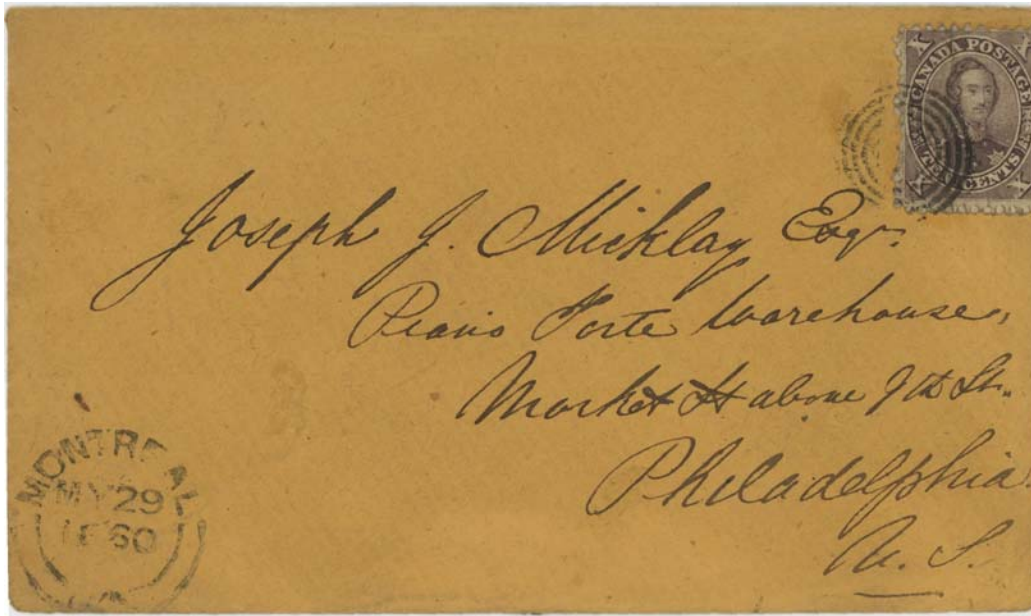 CANADA POSTAGE
CENTS
X
X
X
X
Joseph J. Micklay Esqr.
Piano Forte Warehouse,
Market St above 9th St.
Philadelphia
U. S.
MONTREAL
MY 29
1860